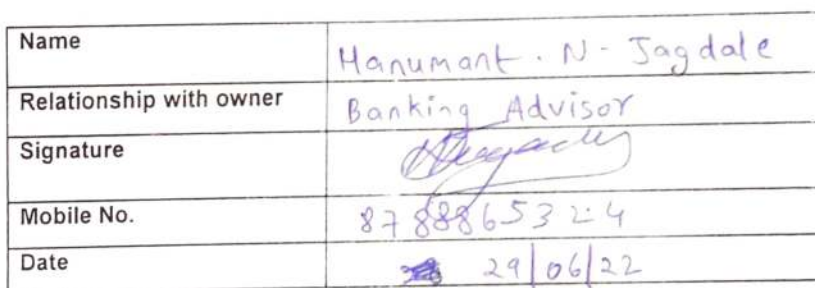 Name Hanumant. N- Jagdale
Relationship with owner Banking Advisor
Signature
Mobile No. 8788865324
Date 29/06/22